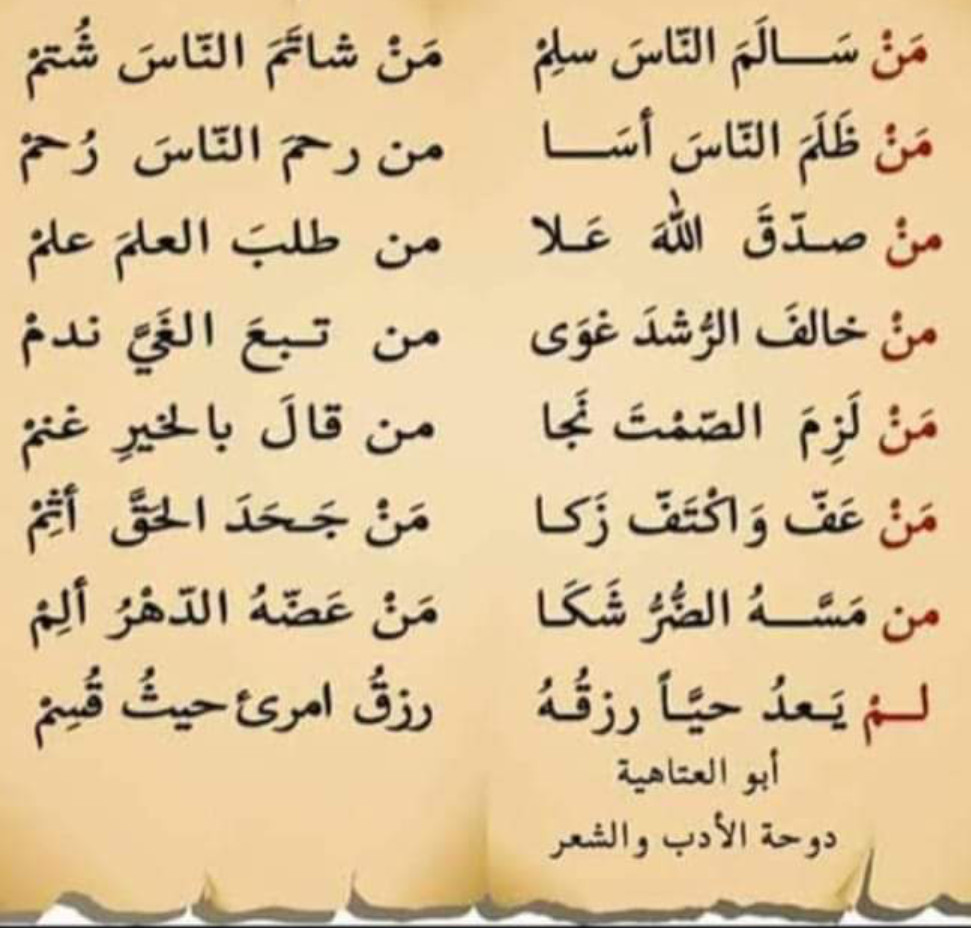 مَنْ سَـــالَمَ النّاسَ سلِمْ مَنْ شاتَمَ النّاسَ شُتمْ
مَنْ ظَلَمَ النّاسَ أسَـــا من رحمَ النّاسَ رُحمْ
منْ صـدّقَ اللهَ عَـلا من طلبَ العلمَ علمْ
منْ خالفَ الرُّشدَ غوَى من تـبعَ الغَيَّ ندمْ
مَنْ لَزِمَ الصّمْتَ نَجا من قالَ بالخيرِ غنمْ
مَنْ عَفّ وَاكْتَفّ زَكـا مَنْ جَـحَدَ الحَقَّ أثِمْ
من مَسَّـــهُ الضُّرُّ شَكَـا مَنْ عَضّهُ الدّهْرُ ألِمْ
لــمْ يَـعدُ حيَّـاً رزقُـهُ رزقُ امرئ حيثُ قُسِمْ
أبو العتاهية
دوحة الأدب والشعر